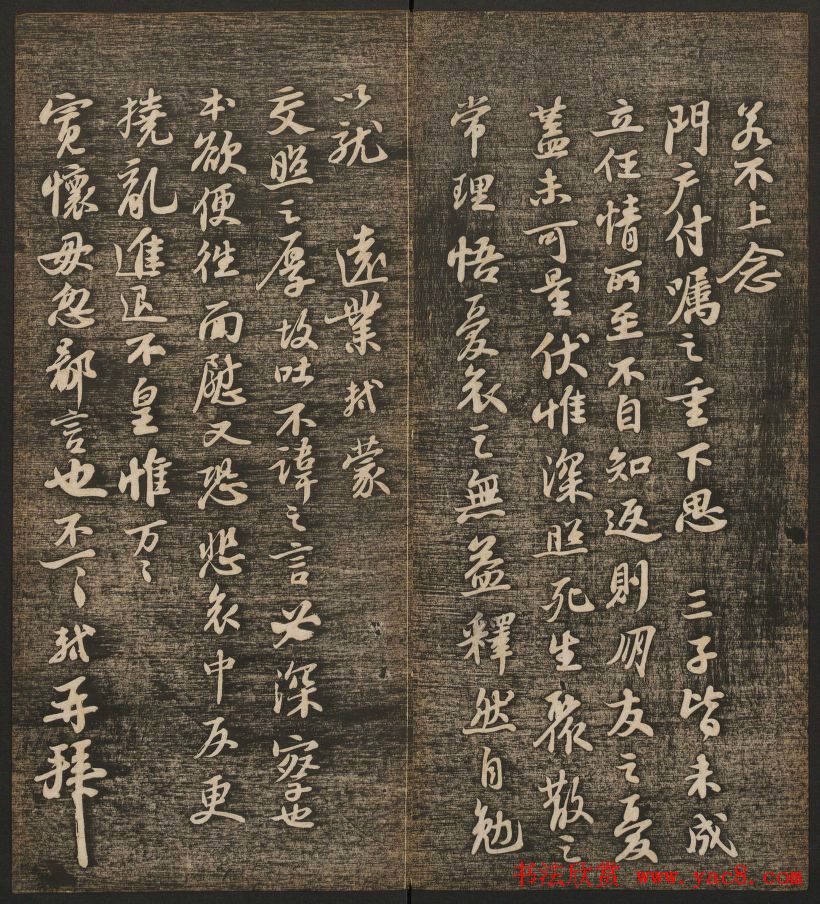 若不上念
門户付嘱之重下思 三子皆未成
立任情所至不自知返則朋友之憂
蓋未可量伏惟深照死生聚散之
常理悟憂哀之無益釋然自勉
以就 遠業軾蒙
交照之厚故吐不諱之言必深察也
本欲便往面慰又恐悲哀中反更
撓亂進退不皇惟万々
寛懷毋忽鄙言也不一一軾再拜
书法欣赏 www.yac8.com